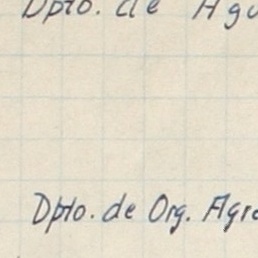 Dpto. de Agu
Dpto. de Org. Agra